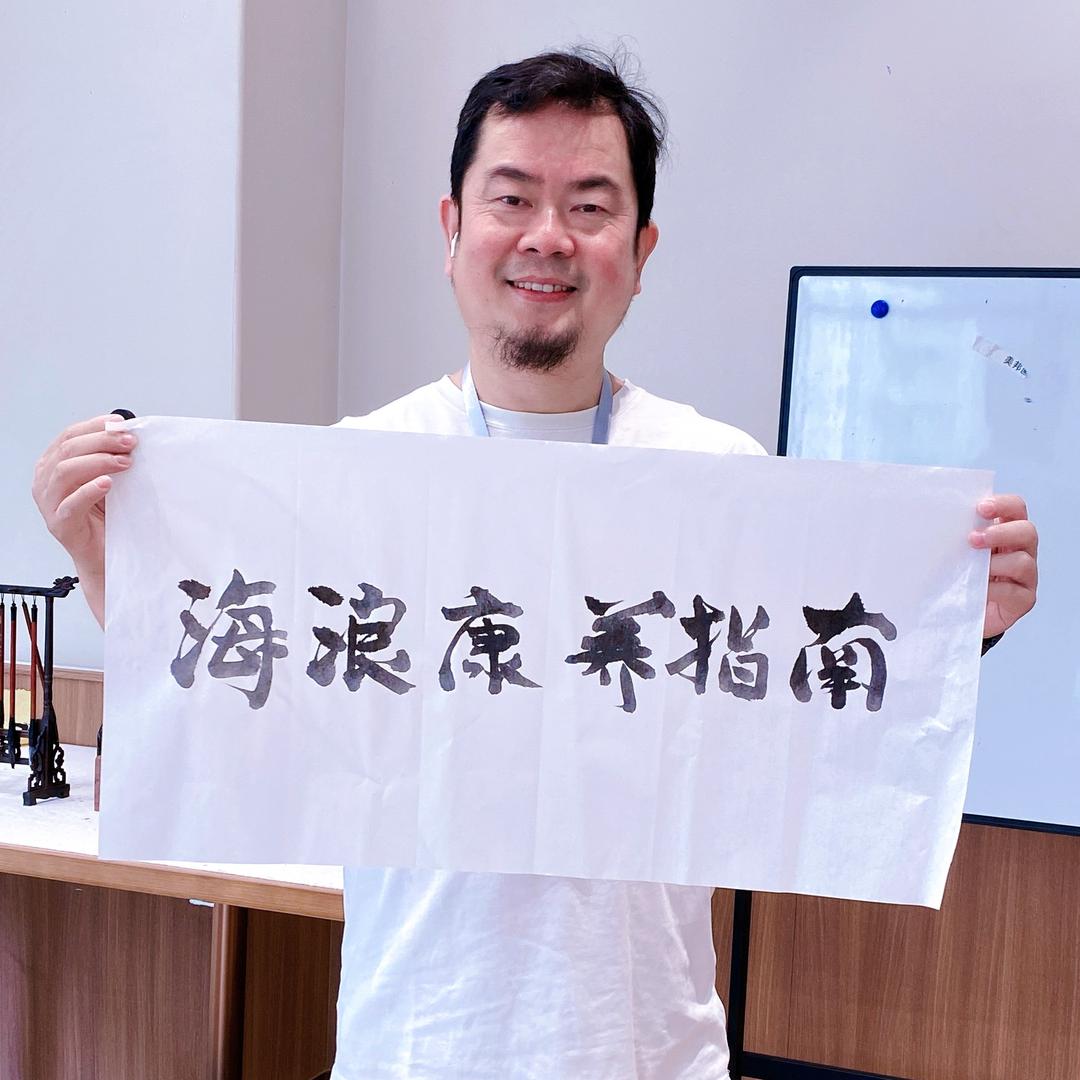 海浪康养指南
美邦